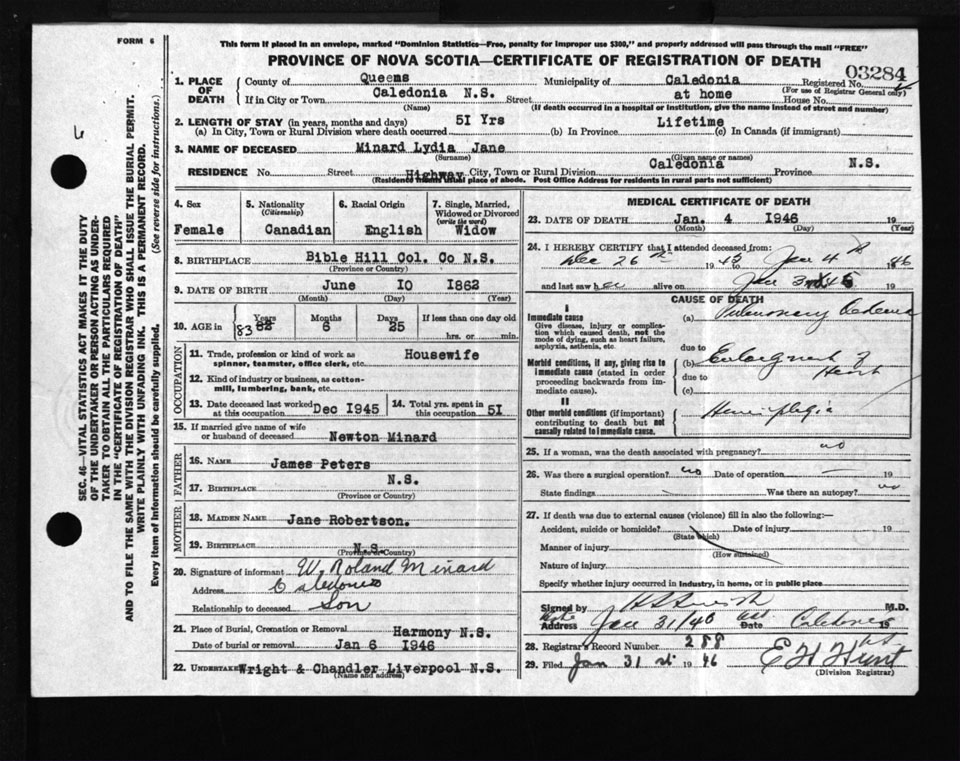 FORM 6
This form if placed in an envelope, marked "Dominion Statistics—Free, penalty for improper use $300," and properly addressed will pass through the mail "FREE"
PROVINCE OF NOVA SCOTIA—CERTIFICATE OF REGISTRATION OF DEATH
03284
1. PLACE OF DEATH County of Queens Municipality of Caledonia Registered No.
(For use of Registrar General only)
If in City or Town Caledonia N.S. Street at home House No.
(Name) (If death occurred in a hospital or institution, give the name instead of street and number)
2. LENGTH OF STAY (in years, months and days)
(a) In City, Town or Rural Division where death occurred 51 Yrs (b) In Province Lifetime (c) In Canada (if immigrant)
3. NAME OF DECEASED Minard Lydia Jane
(Surname) (Given name or names)
RESIDENCE No. Street Highway City, Town or Rural Division Caledonia Province N.S.
(Residence means usual place of abode. Post Office Address for residents in rural parts not sufficient)
4. Sex Female
5. Nationality (Citizenship) Canadian
6. Racial Origin English
7. Single, Married, Widowed or Divorced (write the word) Widow
8. BIRTHPLACE Bible Hill Col. Co N.S.
(Province or Country)
9. DATE OF BIRTH June 10 1862
(Month) (Day) (Year)
10. AGE in Years 83 82 Months 6 Days 25 If less than one day old hrs. or min.
OCCUPATION
11. Trade, profession or kind of work as spinner, teamster, office clerk, etc. Housewife
12. Kind of industry or business, as cotton-mill, lumbering, bank, etc.
13. Date deceased last worked at this occupation Dec 1945 14. Total yrs. spent in this occupation 51
15. If married give name of wife or husband of deceased Newton Minard
FATHER
16. NAME James Peters
17. BIRTHPLACE N.S.
(Province or Country)
MOTHER
18. MAIDEN NAME Jane Robertson.
19. BIRTHPLACE N.S.
(Province or Country)
20. Signature of informant W. Roland Minard
Address Caledonia
Relationship to deceased Son
21. Place of Burial, Cremation or Removal Harmony N.S.
Date of burial or removal Jan 6 1946
22. UNDERTAKER Wright & Chandler Liverpool N.S.
(Name and address)
MEDICAL CERTIFICATE OF DEATH
23. DATE OF DEATH Jan. 4 1946 19
(Month) (Day) (Year)
24. I HEREBY CERTIFY that I attended deceased from:
Dec 26th 1945 to Jan 4th 1946
and last saw her alive on Jan 3rd 19
CAUSE OF DEATH
I
Immediate cause
Give disease, injury or complication which caused death, not the mode of dying, such as heart failure, asphyxia, asthenia, etc.
(a) Pulmonary Oedema
due to
Morbid conditions, if any, giving rise to immediate cause (stated in order proceeding backwards from immediate cause).
(b) Enlargment of Heart
due to
(c)
II
Other morbid conditions (if important) contributing to death but not causally related to immediate cause.
Hemiplegia
25. If a woman, was the death associated with pregnancy? no
26. Was there a surgical operation? no Date of operation 19
State findings Was there an autopsy? no
27. If death was due to external causes (violence) fill in also the following:—
Accident, suicide or homicide? Date of injury 19
(State which)
Manner of injury
(How sustained)
Nature of injury
Specify whether injury occurred in industry, in home, or in public place
Signed by M.D.
Address Date Jan 31/46 Caledonia
28. Registrar's Record Number 288
29. Filed Jan 31st 1946 E H Hunt
(Division Registrar)
SEC. 46—VITAL STATISTICS ACT MAKES IT THE DUTY
OF THE UNDERTAKER OR PERSON ACTING AS UNDER-
TAKER TO OBTAIN ALL THE PARTICULARS REQUIRED
IN THE "CERTIFICATE OF REGISTRATION OF DEATH"
AND TO FILE THE SAME WITH THE DIVISION REGISTRAR WHO SHALL ISSUE THE BURIAL PERMIT.
WRITE PLAINLY WITH UNFADING INK. THIS IS A PERMANENT RECORD.
Every item of information should be carefully supplied. (See reverse side for instructions.)